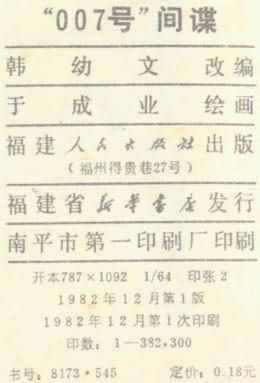 “007号”间谍
韩幼文 改编
于成业 绘画
福建人民出版社出版
（福州得贵巷27号）
福建省新华书店发行
南平市第一印刷厂印刷
开本787×1092 1/64 印张2
1982年12月第1版
1982年12月第1次印刷
印数：1—382,300
书号：8173·545 定价：0.18元